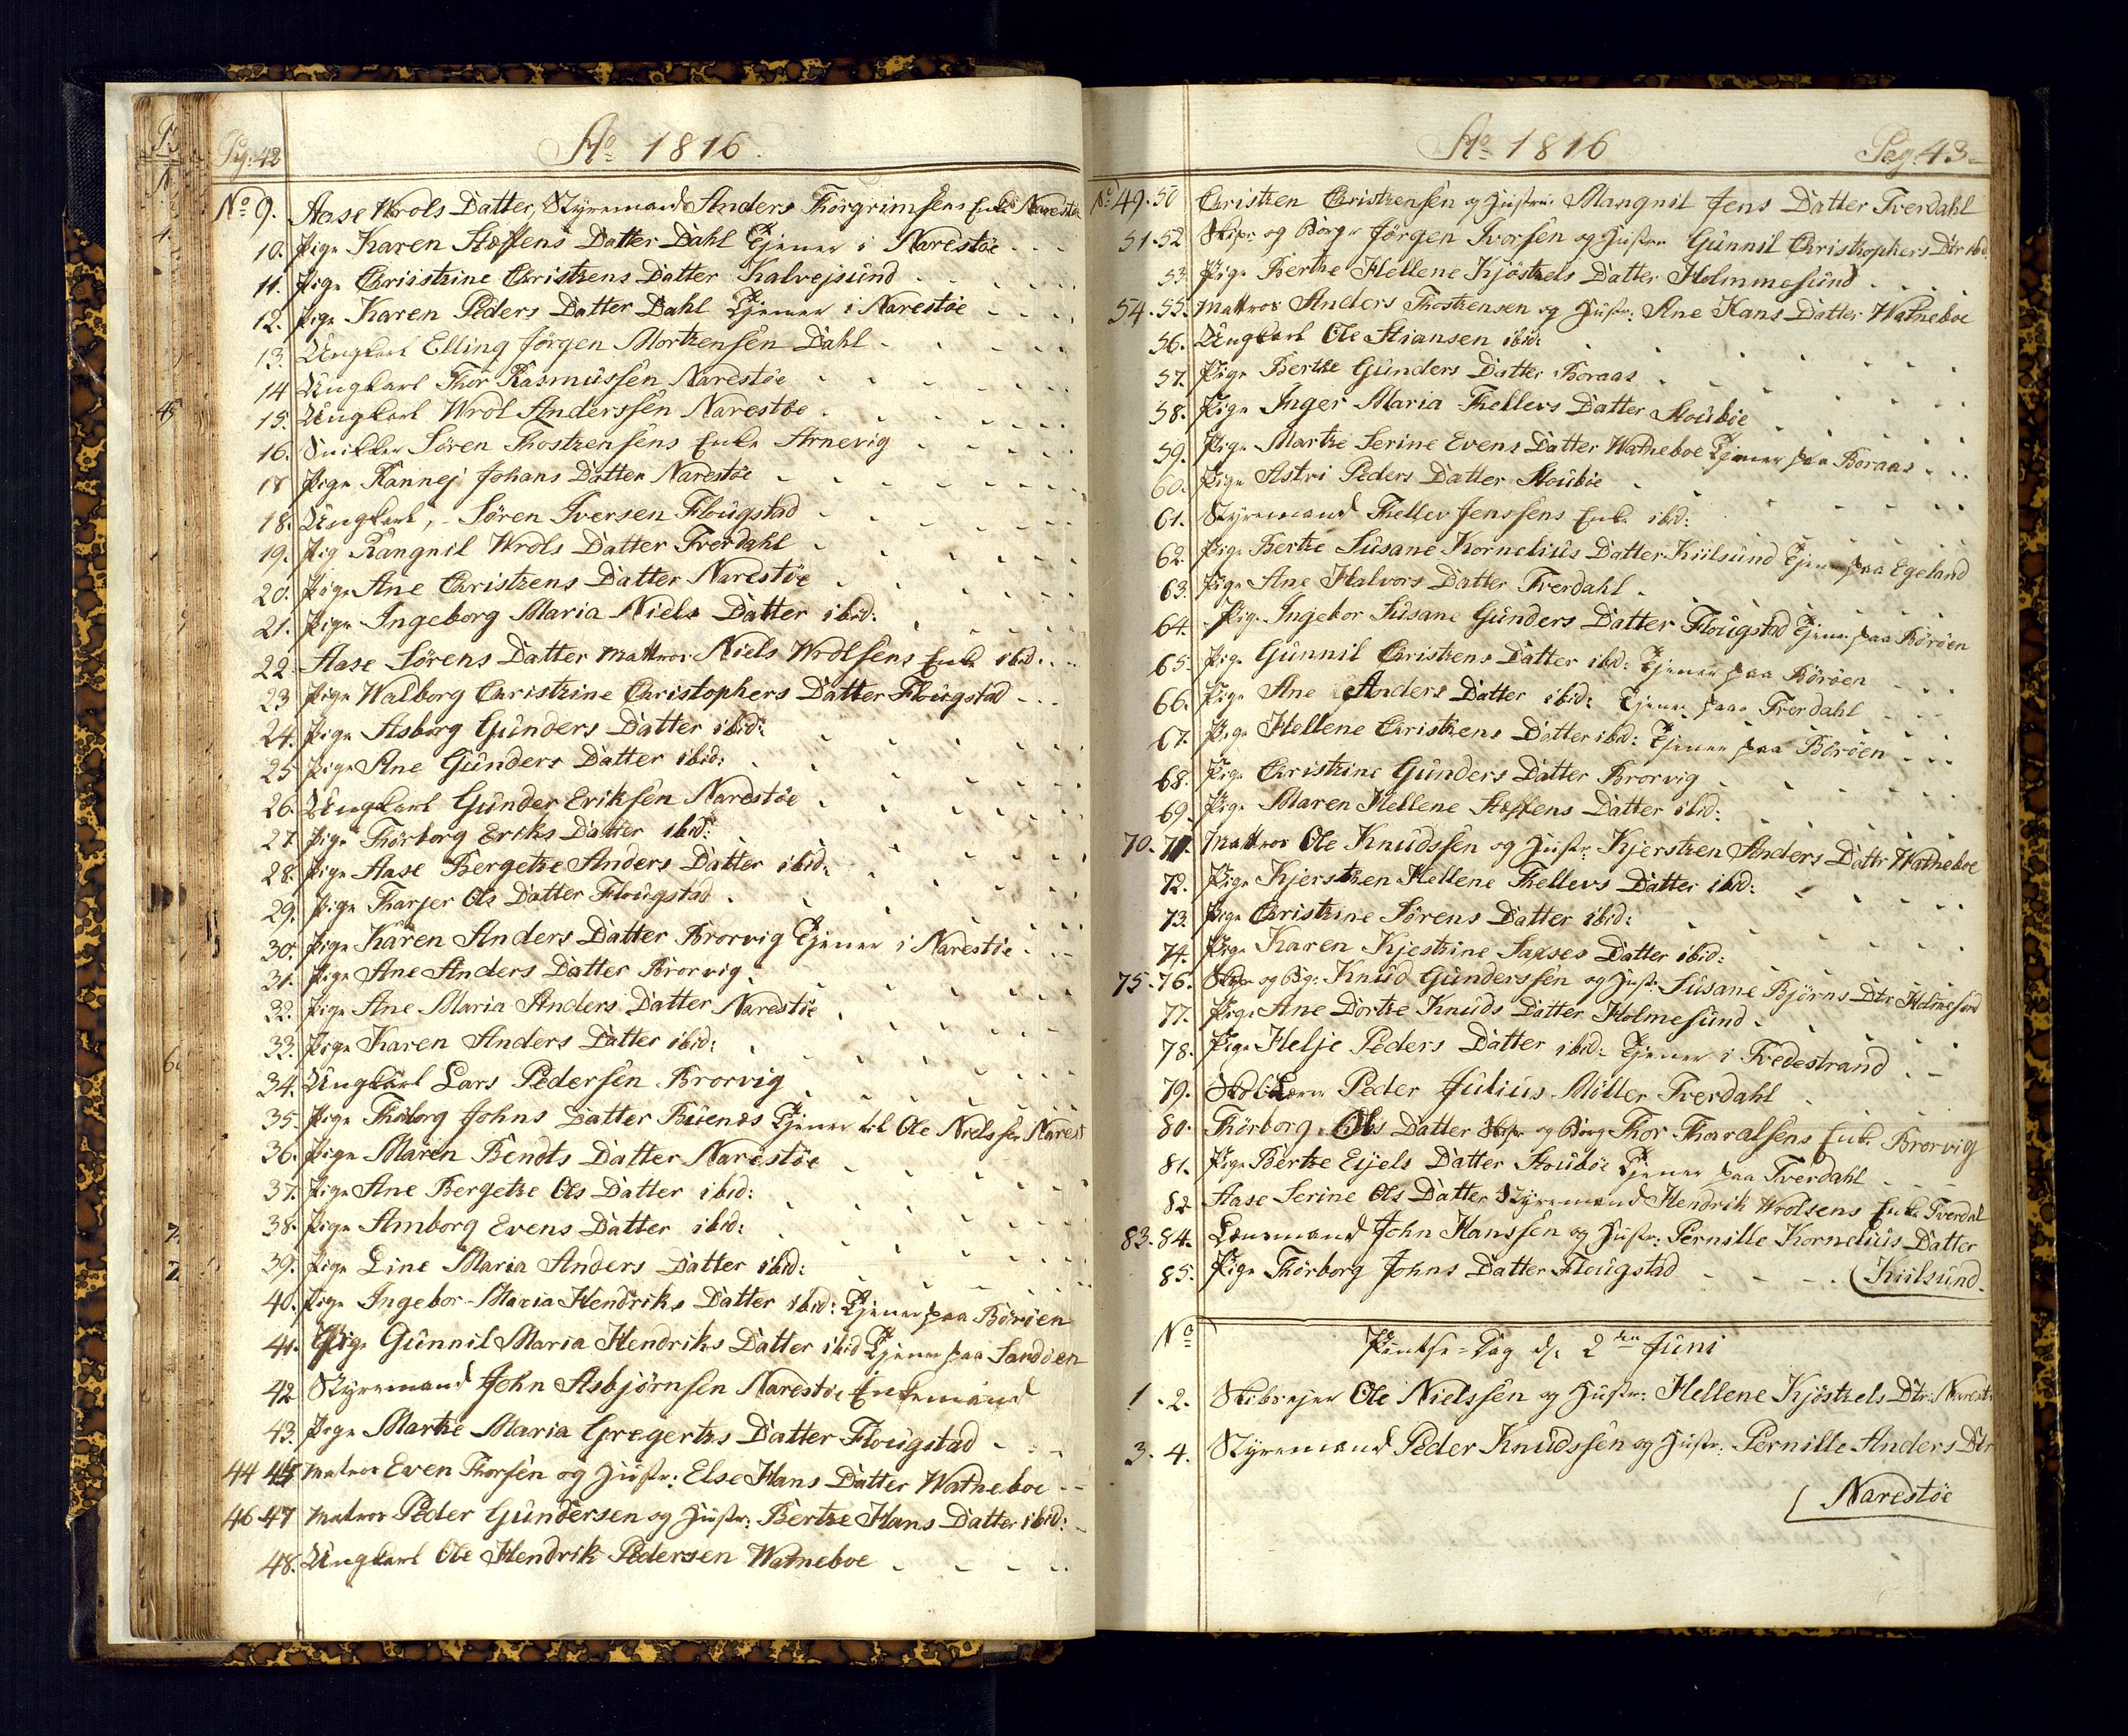 Pag: 42
Ao 1816.
No 9. Aase Wrols Datter, Styremand Anders Thorgrimsens Enke Narestøe
10. Pige Karen Steffens Datter Dahl Tjener i Narestøe
11. Pige Chrisstine Christens Datter Kalvejsund
12. Pige Karen Peders Datter Dahl Tjener i Narestøe
13. Ungkarl Elling Jørgen Mortensen Dahl
14 Ungkarl Thor Rasmussen Narestøe
15. Ungkarl Wrol Anderssen Narestøe
16. Snikker Søren Thostensens Enke Arnevig
17 Pige Rannej Johans Datter Narestøe
18. Ungkarl, Søren Iversen Flougstad
19. Pig Rangnil Wrols Datter Tverdahl
20. Pige Ane Christens Datter Narestøe
21. Pige Ingeborg Maria Niels Datter ibid:
22. Aase Sørens Datter Mattros Niels Wrolsens Enke ibid:
23 Pige Walborg Christine Christophers Datter Flougstad
24. Pige Asborg Gunders Datter ibid:
25 Pige Ane Gunders Datter ibid:
26. Ungkarl Gunder Eriksen Narestøe
27 Pige Thorborg Eriks Datter ibid:
28. Pige Aase Bergete Anders Datter ibid:
29. Pige Tharjer Ols Datter Flougstad
30. Pige Karen Anders Datter Brorvig Tjener i Narestøe
31. Pige Ane Anders Datter Brorvig
32. Pige Ane Maria Anders Datter Narestøe
33. Pige Karen Anders Datter ibid:
34. Ungkarl Lars Pedersen Brorvig
35. Pige Thoborg Johns Datter Buenes Tjener til Ole Nielssen Narest
36. Pige Maren Bendts Datter Narestøe
37. Pige Ane Bergete Ols Datter ibid:
38. Pige Amborg Evens Datter ibid:
39. Pige Line Maria Anders Datter ibid:
40. Pige Ingebor Maria Hendriks Datter ibid: Tjener paa Børøen
41. Pige Gunnil Maria Hendriks Datter ibid Tjener paa Sandøen
42 Styremand John Asbjørnsen Narestøe Enkemand
43. Pige Marte Maria Gregerts Datter Flougstad
44 45 Matros Even Thorsen og Hustr: Else Hans Datter Watneboe
46-47 Matros Peder Gundersen og Hustr: Berte Hans Datter ibid:
48. Ungkarl Ole Hendrik Pedersen Watneboe
Ao 1816
Pag. 43
No 49. 50 Christen Christensen og Hustru: Mangnil Jens Datter Tverdahl
51. 52 Skipr. og Borgr Jørgen Ivorsen og Hustru Gunnil Christophers Dtr ibid.
53 Pige Berthe Hellene Kjøstels Datter Holmmesund
54. 55. Mattros Anders Thostensen og Hustr: Ane Hans Datter Watneboe
56. Ungkarl Ole Stiansen ibid:
57. Pige Berthe Gunders Datter Boraas
58. Pige Inger Maria Thellevs Datter Stoubøe
59. Pige Marte Serine Evens Datter Watneboe Tjener paa Boraas
60. Pige Astri Peders Datter Stoubøe
61. Styremand Thellev Jenssens Enke ibid:
62. Pige Berte Susane Kornelius Datter Kiilsund Tjener paa Egeland
63. Pige Ane Halvors Datter Tverdahl
64. Pige Ingebor Susane Gunders Datter Flougstad Tjener paa Børøen
65. Pige Gunnil Christens Datter ibid: Tjener paa Børøen
66. Pige Ane Anders Datter ibid: Tjener paa Tverdahl
67. Pige Hellene Christens Datter ibid: Tjener paa Børøen
68. Pige Christine Gunders Datter Brorvig
69. Pige Maren Hellene Steffens Datter ibid:
70. 71. Mattros Ole Knudssen og Hustr: Kjersten Anders Dattr Watneboe
72. Pige Kjersten Hellene Thellevs Datter ibid:
73. Pige Christine Sørens Datter ibid:
74. Pige Karen Kjestine Saxses Datter ibid:
75. 76. Skipr og Bg: Knud Gunderssen og Hustr: Susane Bjørns Dtr Holmesund
77. Pige Ane Dorte Knuds Datter Holmesund
78. Pige Helje Peders Datter ibid: Tjener i Tvedestrand
79. Skolelærer Peder Julius Møller Tverdahl
80. Thorborg Ols Datter Skipr og Borg Thor Tharalsens Enke Brorvig
81. Pige Berte Eijels Datter Stoubøe Tjener paa Tverdahl
82 Aase Serine Ols Datter Styremand Hendrik Wrolsens Enke Tverdal
83. 84. Lensmand John Hanssen og Hustr: Pernille Kornelius Datter
85. Pige Thorborg Johns Datter Flougstad
Kiilsund.
No
Pintse-Dag d: 2den Juni
1. 2. Skibsejer Ole Nielssen og Hustr: Hellene Kjøstels Dtr: Narest
3. 4. Styremand Peder Knudssen og Hustr. Pernille Anders Dtr
Narestøe